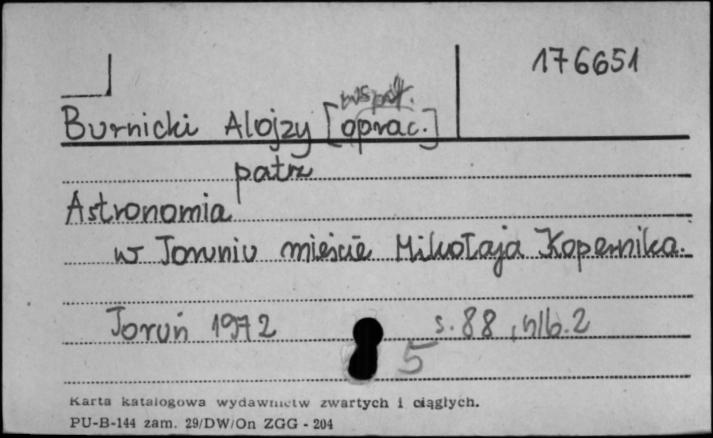 176651
współ.
Burnicki Alojzy [oprac.]
patrz
Astronomia
w Toruniu mieście Mikołaja Kopernika.
Toruń 1972 s. 88, nlb. 2
5
Karta katalogowa wydawnictw zwartych i ciągłych.
PU-B-144 zam. 29/DW/On ZGG - 204